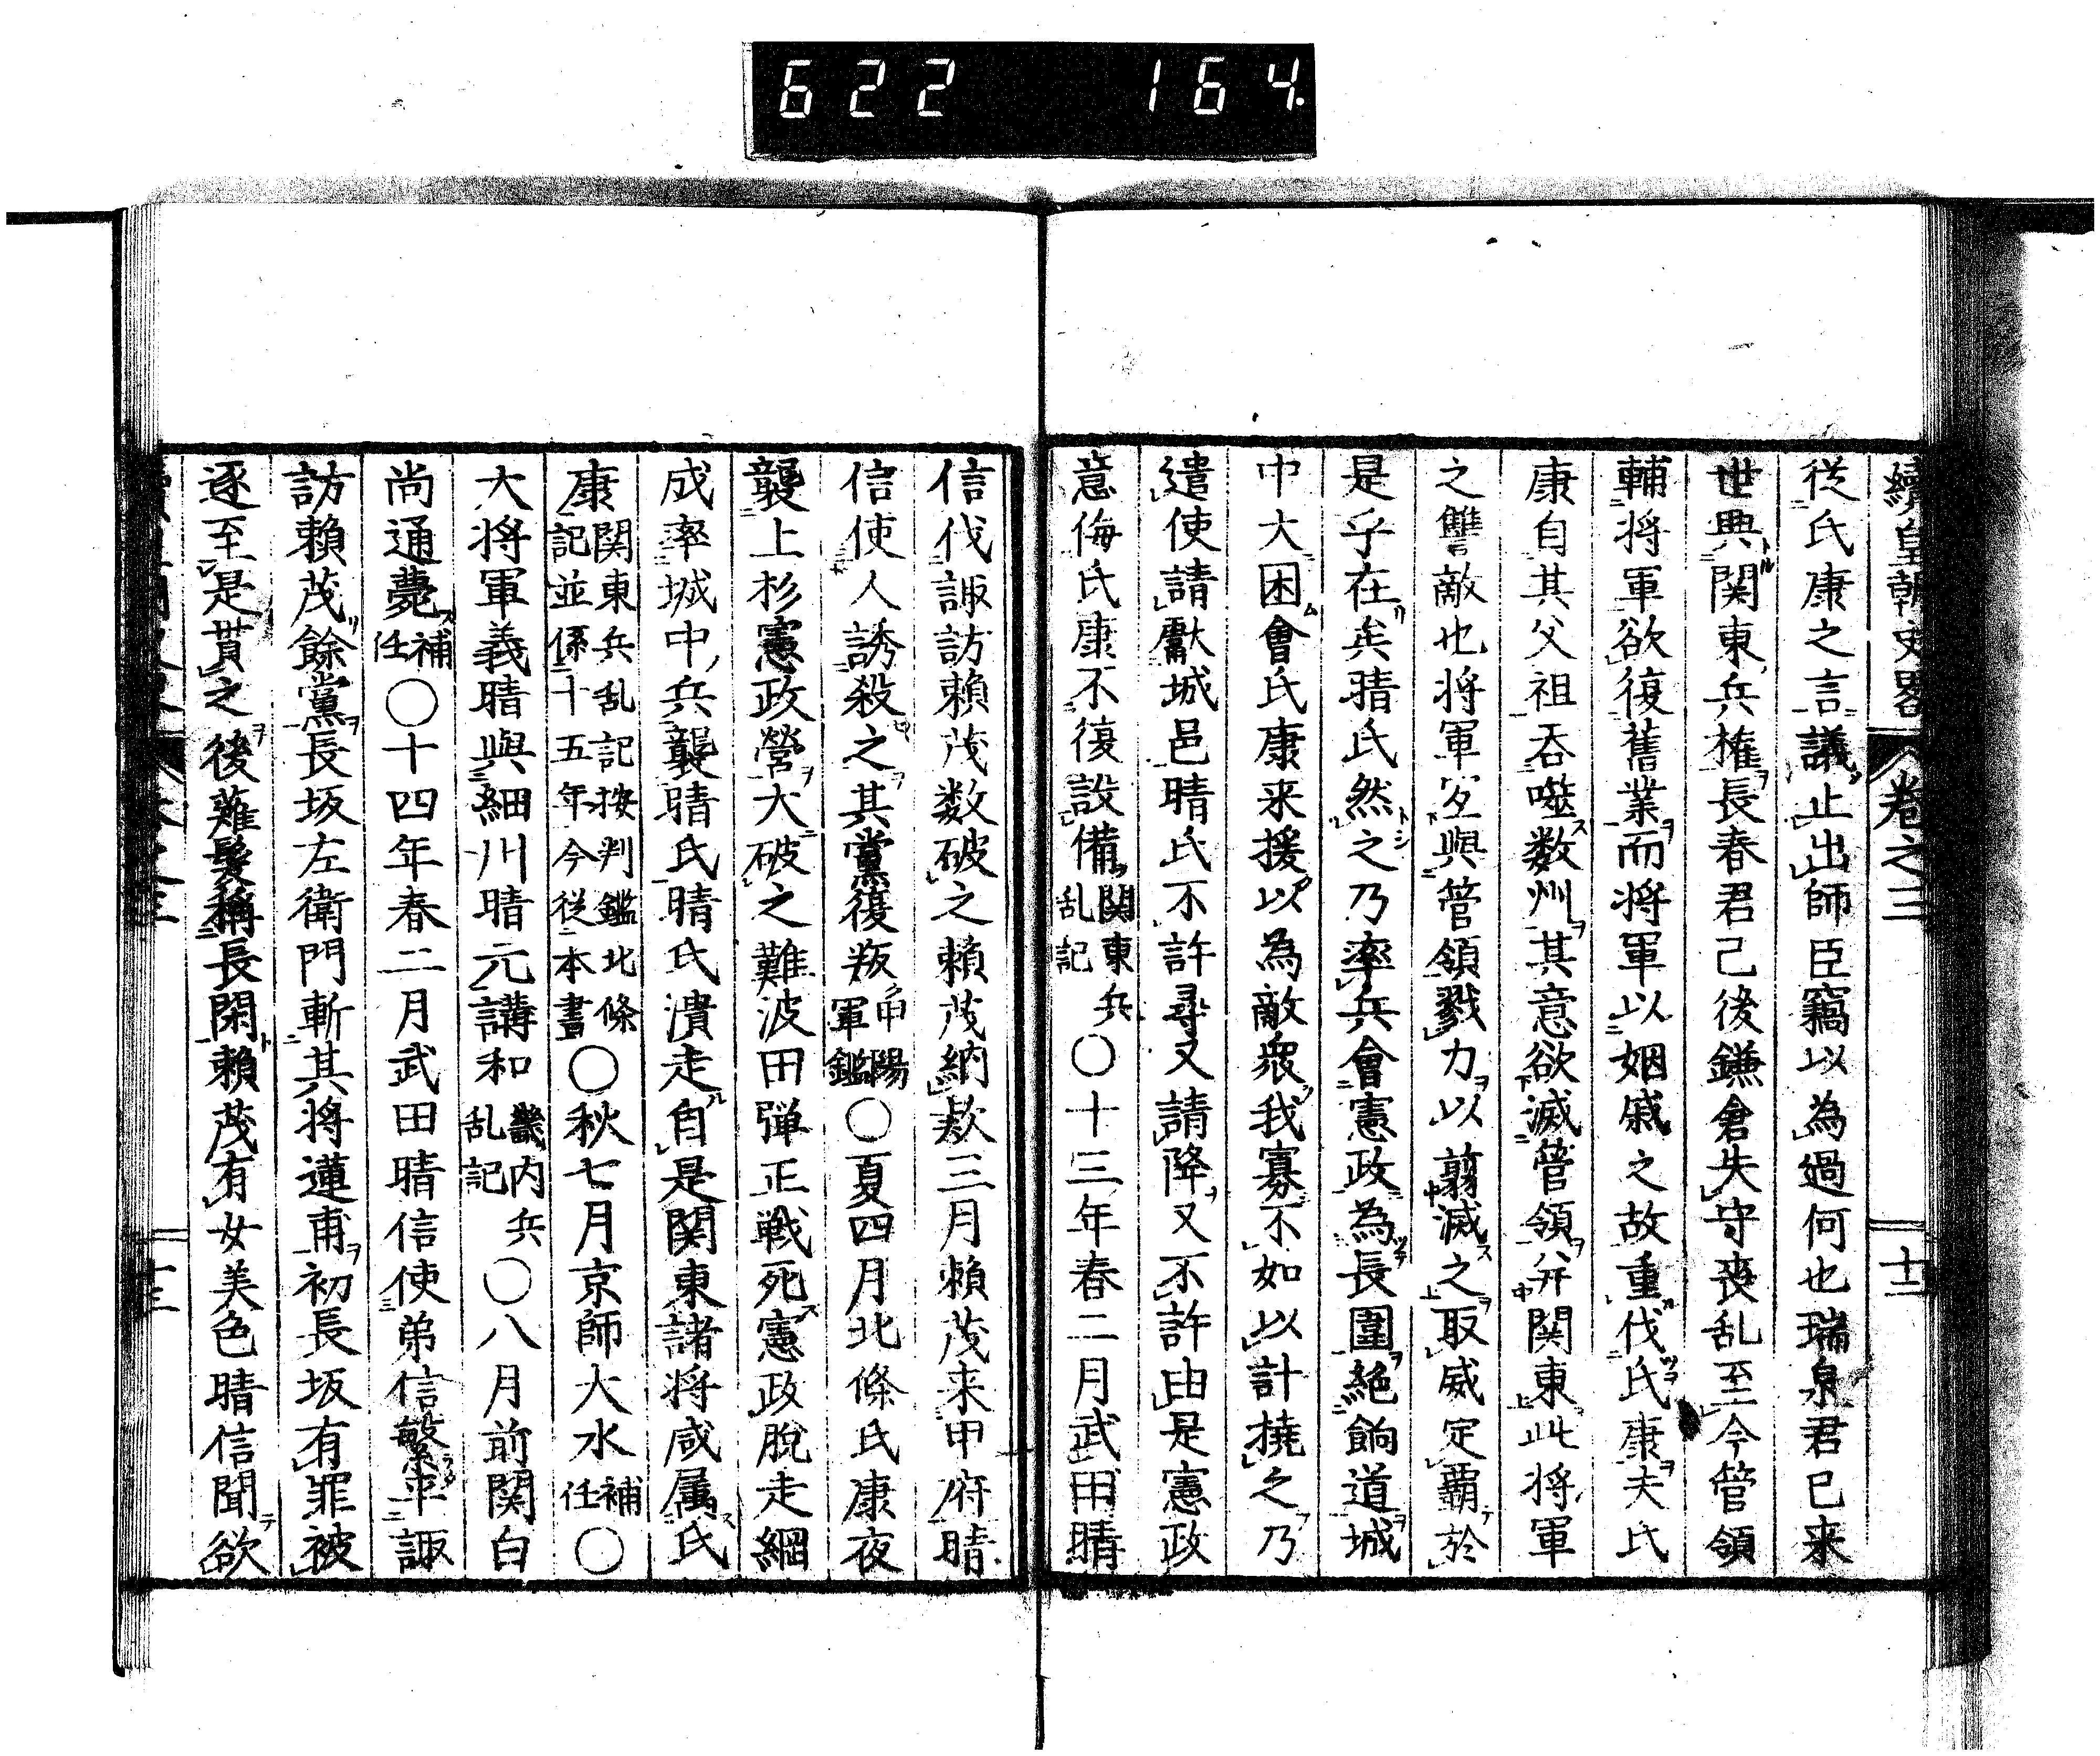 622 164.
續皇朝史畧 卷之三 十二
從氏康之言議止出師臣竊以為過何也瑞泉君已来
世典関東兵権長春君己後鎌倉失守喪乱至今管領
輔将軍欲復舊業而将軍以姻戚之故重伐氏康夫氏
康自其父祖呑噬数州其意欲滅管領并関東此将軍
之讐敵也将軍宜與管領戮力以翦滅之取威定覇於
是乎在矣晴氏然之乃率兵會憲政為長圍絶餉道城
中大困會氏康来援以為敵衆我寡不如以計撓之乃
遣使請獻城邑晴氏不許尋又請降又不許由是憲政
意侮氏康不復設備関東兵乱記〇十三年春二月武田晴
信伐諏訪賴茂数破之賴茂納款三月賴茂来甲府晴
信使人誘殺之其黨復叛甲陽軍鑑〇夏四月北條氏康夜
襲上杉憲政營大破之難波田弾正戦死憲政脫走綱
成率城中兵襲晴氏晴氏潰走自是関東諸将咸属氏
康関東兵乱記按判鑑北條記並係十五年今従本書〇秋七月京師大水補任〇
大将軍義晴與細川晴元講和畿内兵乱記〇八月前関白
尚通薨補任〇十四年春二月武田晴信使弟信繁平諏
訪賴茂餘黨長坂左衛門斬其将蓮甫初長坂有罪被
逐至是貰之後薙髮稱長閑賴茂有女美色晴信聞欲